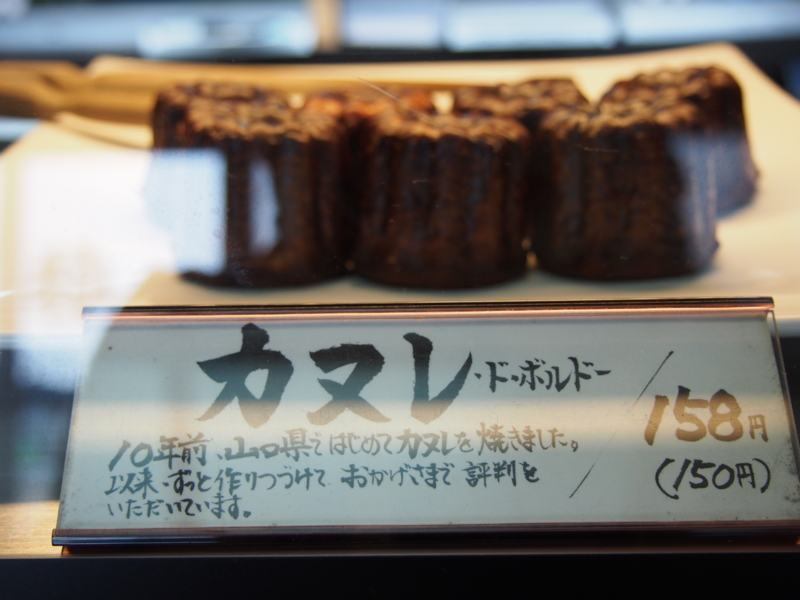 カヌレ・ド・ボルドー
158円
(150円)
10年前、山口県ではじめてカヌレを焼きました。
以来、ずっと作りつづけて おかげさまで 評判を
いただいています。